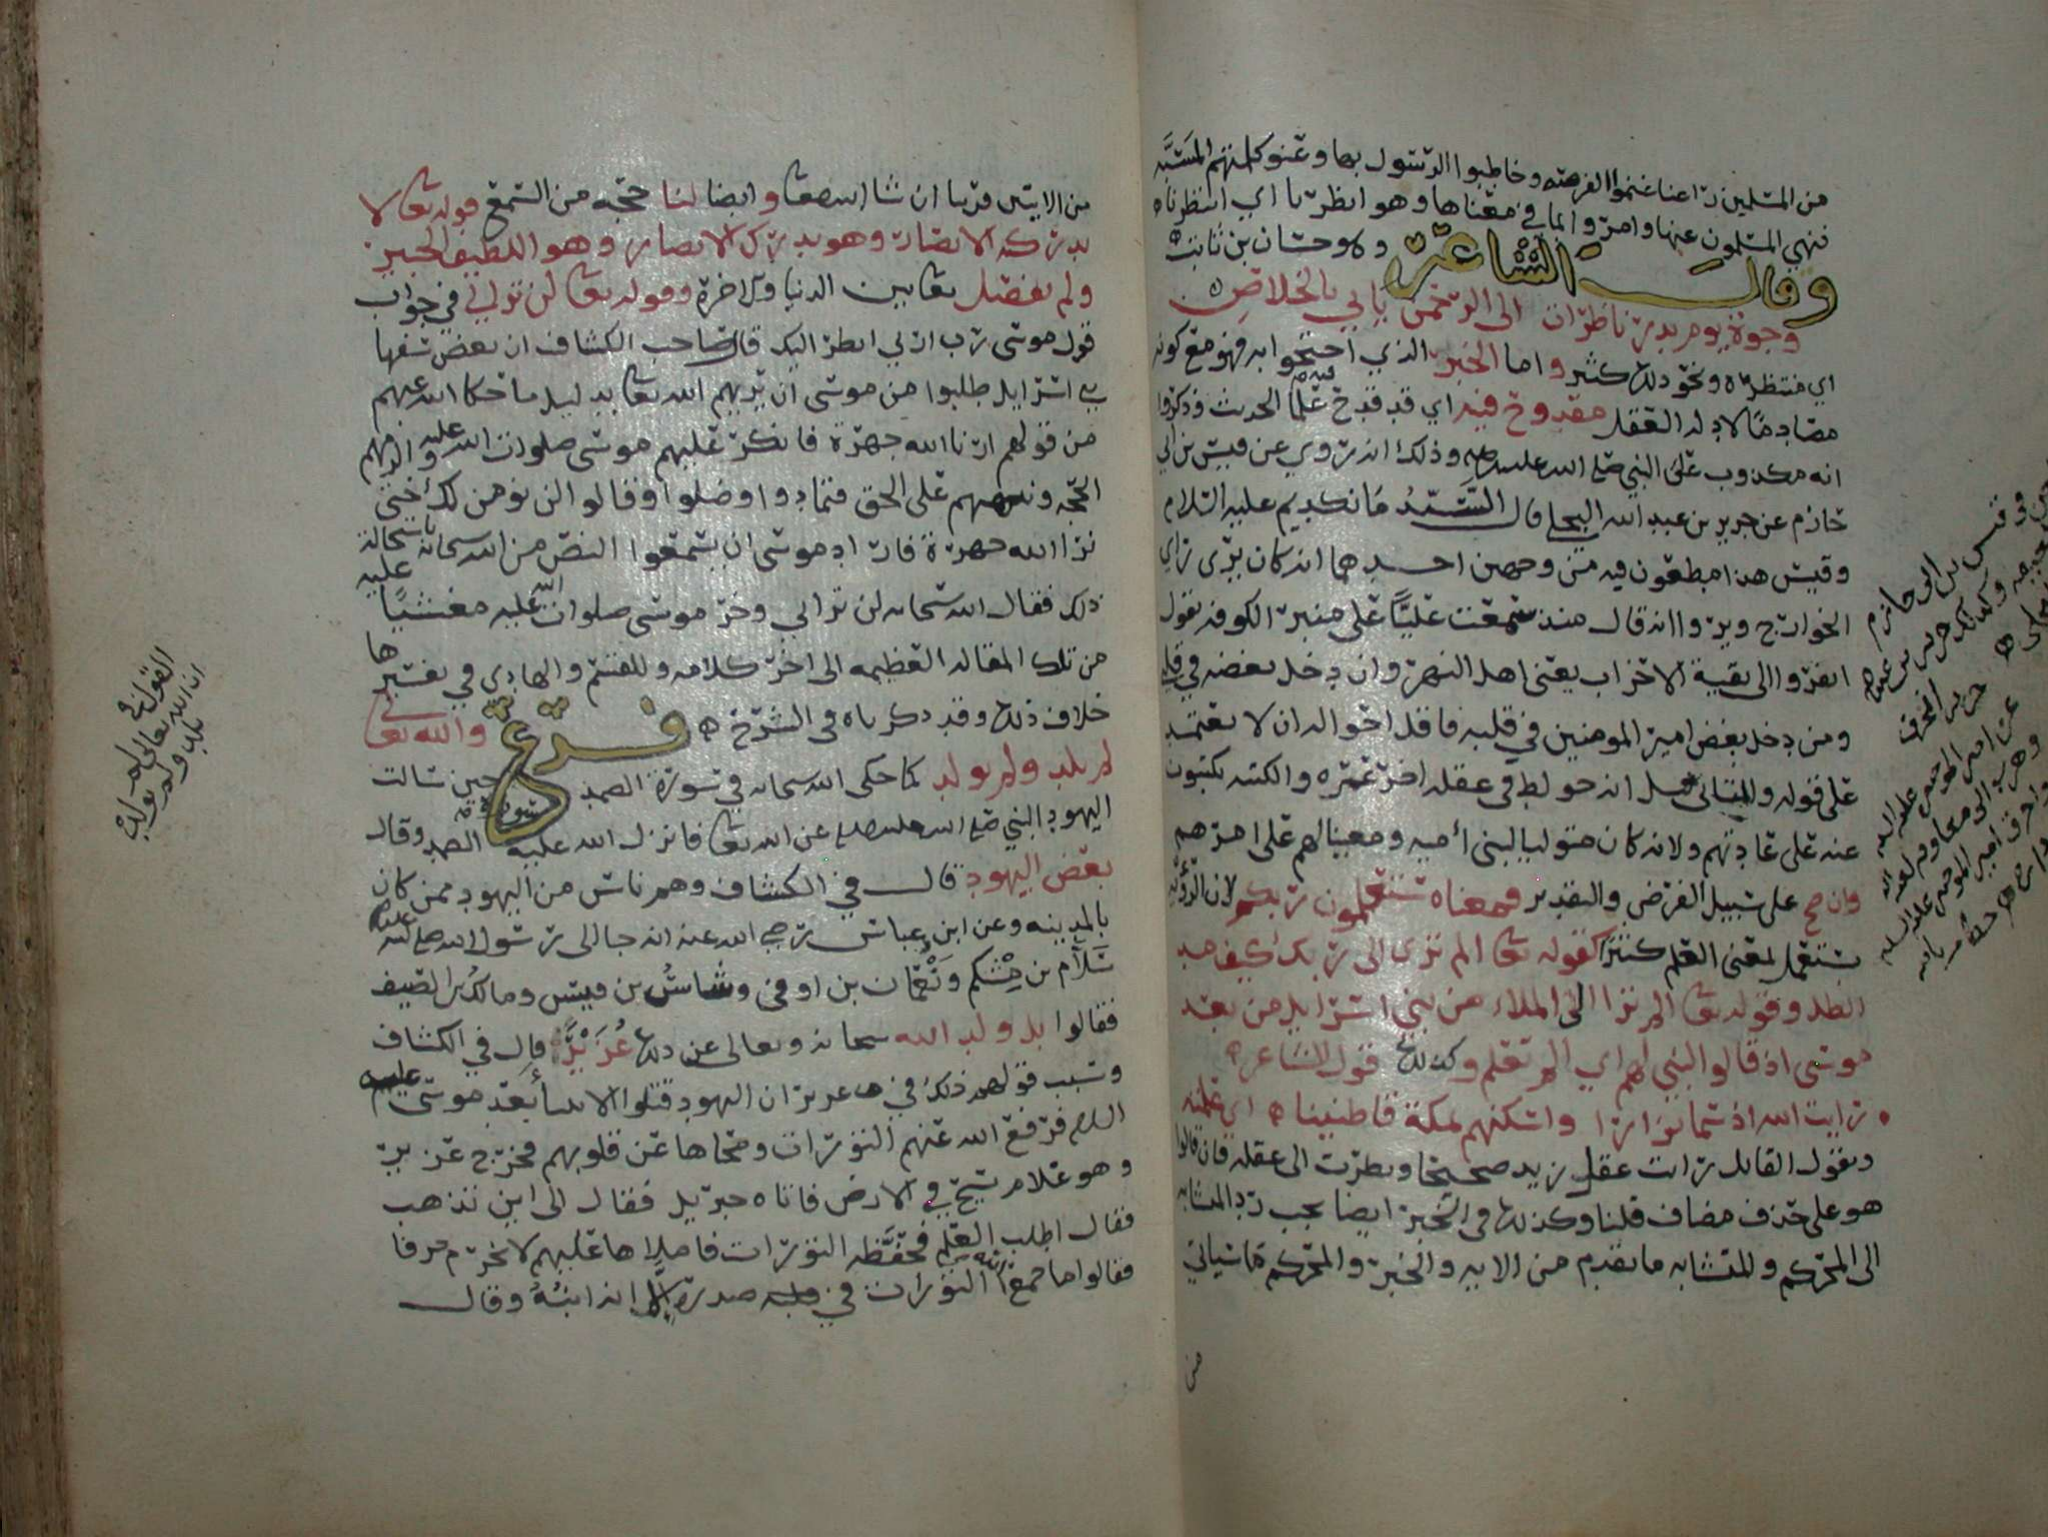 من المسلمين راعنا غنموا الفرصة وخاطبوا الرسول بها وعنوا كلمتهم المسبة
فنهي المسلمون عنها وامروا بما في معناها وهو انظرنا اي انتظرنا ه
وقال الشاعر وهو حسان بن ثابت ه
وجوة يوم بدر ناظرات الى الرحمن ياتي بالخلاص ه
اي منتظره ونحو ذلك كثير واما الخبر الذي احتجوا به فهو مع كونه
مصادما لادلة العقل مقدوح فيه اي قد قدح فيه علما الحديث وذكروا
انه مكذوب على النبي صلى الله عليه وذلك انه روي عن قيس بن ابي
حازم عن جرير بن عبد الله البجلي قال السيد مانكديم عليه السلام
وقيس هذا مطعون فيه من وجهين احدهما انه كان يرى راي
الخوارج ويروا انه قال منذ سمعت عليا على منبر الكوفه يقول
انفروا الى بقية الاحزاب يعني اهل النهر وان دخل بغضه في قلبي
ومن دخل بغض امير المومنين في قلبه فاقل احواله ان لا يعتمد
على قوله والثاني قيل انه خولط في عقله اخر عمره والكتبه يكتبون
عنه على عادتهم ولانه كان متوليا لبني أميه ومعينا لهم على امرهم
وان صح على سبيل الفرض والتقدير فمعناه ستعلمون ربكم لان الرؤيه
تستعمل لمعنى العلم كثيرا كقوله تعا الم ترى الى ربك كيف مد
الظل وقوله تعا الم ترا الى الملاء من بني اسرايل من بعد
موسى اذ قالوا لنبي لهم اي الم تعلم وكذلك قول الشاعر ه
ه رايت الله اذ سما نزارا واسكنهم بمكة قاطنينا ه اي علمته
ويقول القايل رات عقل زيد صحيحا ونظرت الى عقله فان قالوا
هو على حذف مضاف قلنا وكذلك في الخبر ايضا يجب رد المتشابه
الى المحكم والمتشابه ما تقدم من الايه والخبر والمحكم ما سياتي
من
من الايتين قريبا ان شا الله تعا وايضا لنا حجه من السمع قوله تعا لا
تدركه الابصار وهو يدرك الابصار وهو اللطيف الخبير
ولم يفصل تعا بين الدنيا والاخرة وقوله تعا لن تراني في جواب
قول موسى رب ارني انظر اليك قال صاحب الكشاف ان بعض سفها
بني اسرايل طلبوا من موسى ان يريهم الله تعا بدليل ما حكا الله عنهم
من قولهم ارنا الله جهرة فانكر عليهم موسى صلوات الله عليه والزمهم
الحجه ونبههم على الحق فتمادوا وضلوا وقالوا لن نومن لك حتى
نرا الله جهرة فاراد موسى ان يسمعوا النص من الله سبحانه باستحالة
ذلك فقال الله سبحانه لن تراني وخر موسى صلوات الله عليه مغشيا عليه
من تلك المقاله العظيمه الى اخر كلامه وللقسم والهادي في تفسيرها
خلاف ذلك وقد ذكرناه في الشرح ه فرع والله تعالى
لم يلد ولم يولد كما حكى الله سبحانه في سورة الصمد حين سالت
اليهود النبي صلى الله عليه عن الله تعا فانزل الله عليه سورة الصمد وقال
بعض اليهود قال في الكشاف وهم ناس من اليهود ممن كان
بالمدينه وعن ابن عباس رضي الله عنه انه جا الى رسول الله صلى الله عليه
سلام بن مشكم ونعمان بن اوفى وشاس بن قيس ومالك بن الصيف
فقالوا بل ولد الله سبحانه وتعالى عن ذلك عزير قال في الكشاف
وسبب قولهم ذلك في عزير ان اليهود قتلوا الانبيا بعد موسى عليه
السلام فرفع الله عنهم التورات ومحاها عن قلوبهم فخرج عزير
وهو غلام يسيح في الارض فاتاه جبريل فقال الى اين تذهب
فقال اطلب العلم فحفظه التورات فاملاها عليهم لا يخرم حرفا
فقالوا ما جمع الله التورات في صدره الا انه ابنه وقال
القول في
ان الله تعالى لم
يلد ولم يولد